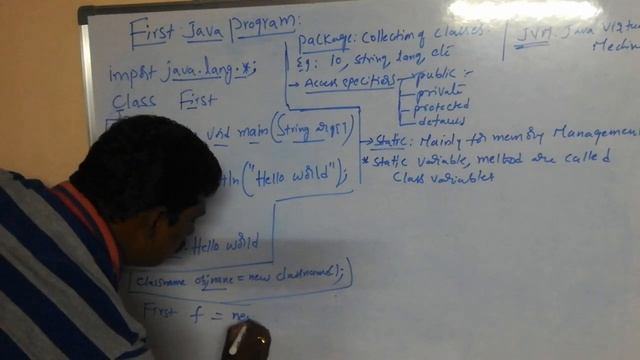 First Java Program:
import java.lang.*;
Class First
void main(String args[])
tln("Hello world");
Hello world
classname objname = new classname();
First f = ne
package: Collection of classes.
Eg: IO, string, lang, etc
→ Access specifiers
public :-
private
protected
defaults
→ Static: Mainly for memory Management
* static variable, method are called
class variables
JVM: Java Virtu
Machin